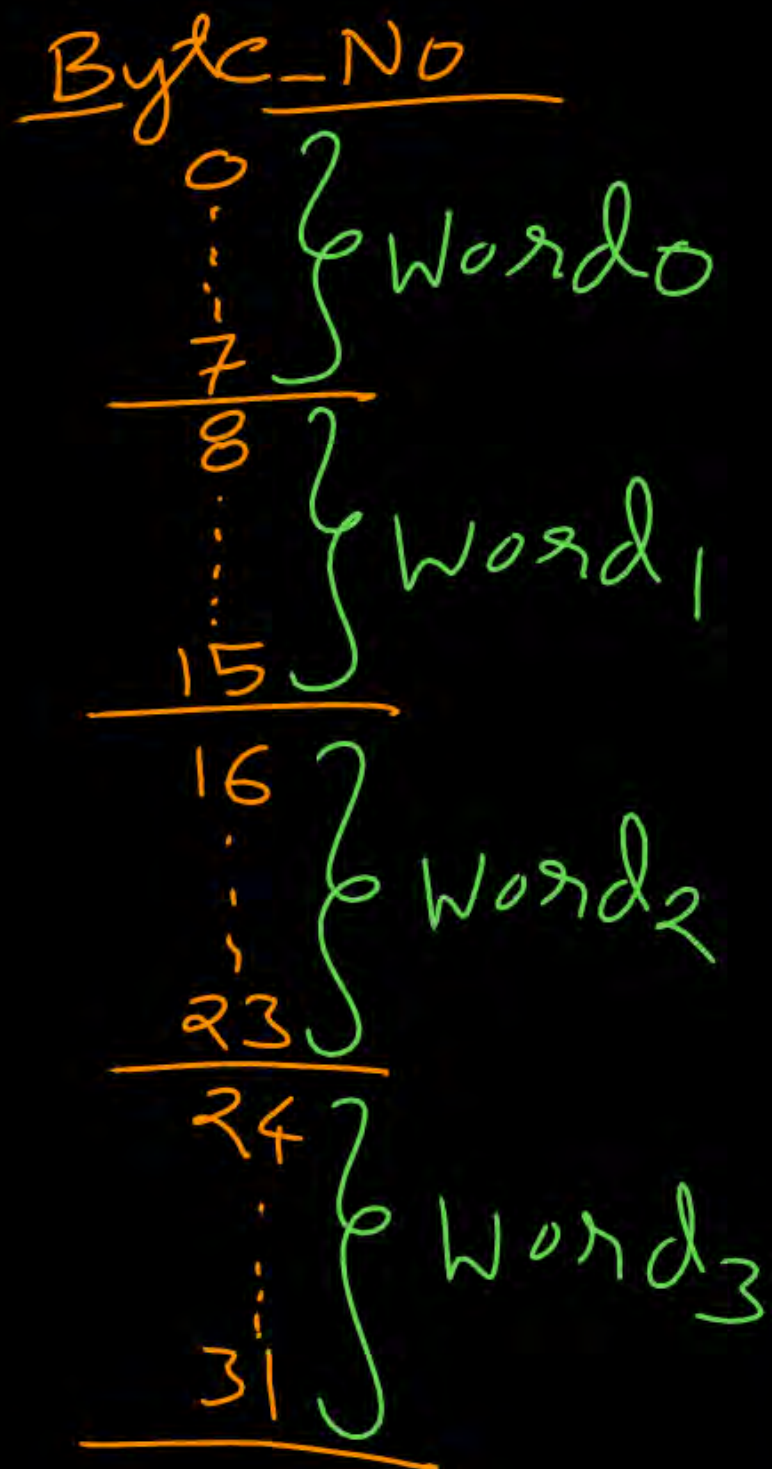 Byte_No
0
7
Word0
8
15
Word1
16
23
Word2
24
31
Word3